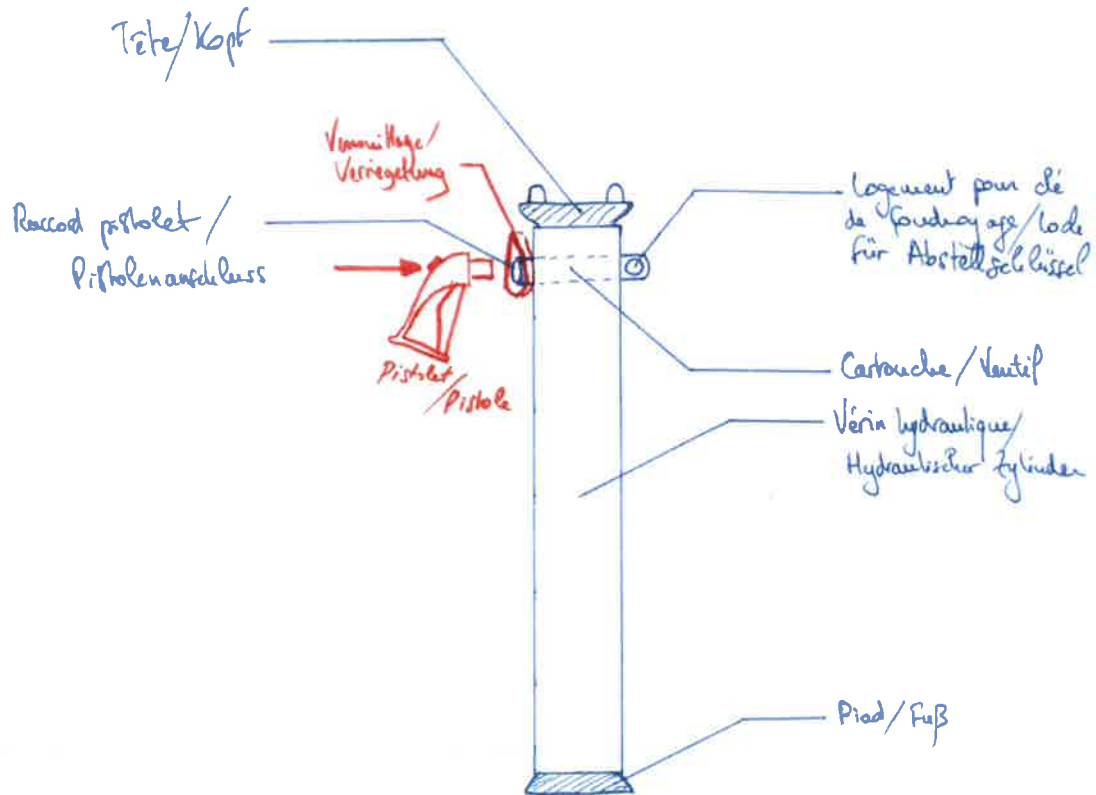 Tête/Kopf
Verrouillage/
Verriegelung
Raccord pistolet/
Pistolenanschluss
Pistolet
/Pistole
Logement pour clé
de foudroyage/Loch
für Abstellschlüssel
Cartouche/Ventil
Vérin hydraulique/
Hydraulischer Zylinder
Pied/Fuß